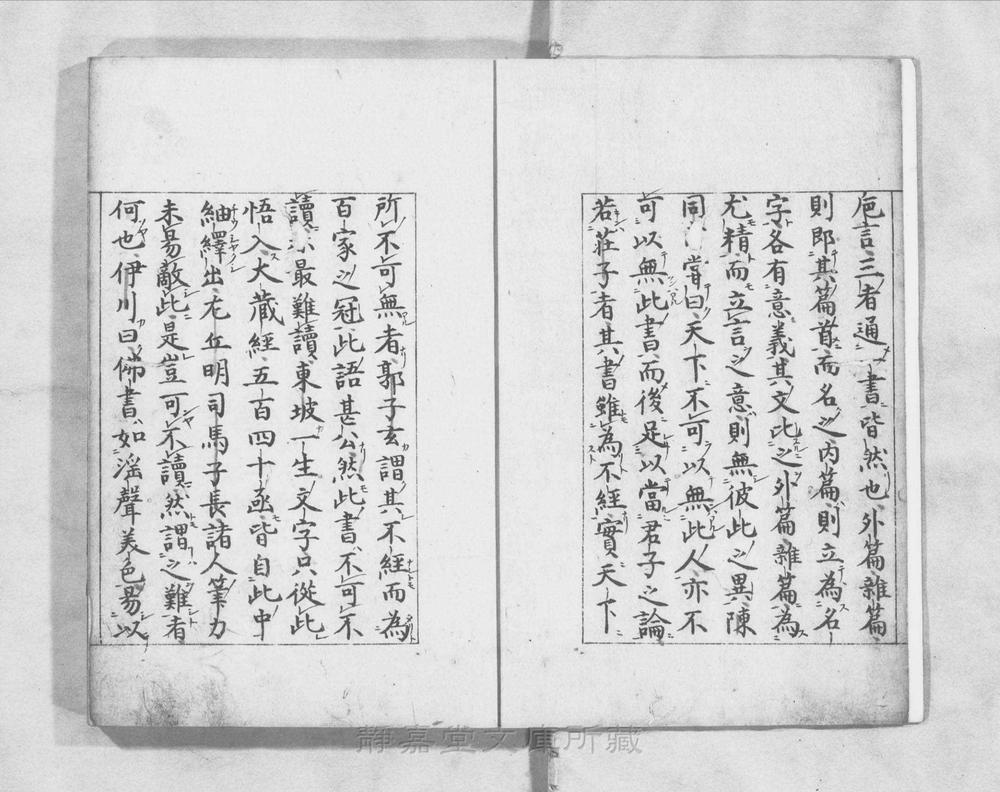 巵言三者通一書皆然也外篇雜篇
則即其篇首而名之内篇則立為名
字各有意義其文比之外篇雜篇為
尤精而立言之意則無彼此之異陳
同甞曰天下不可以無此人亦不
可以無此書而後足以當君子之論
若荘子者其書雖為不經實天下
所不可無者郭子玄謂其不經而為
百家之冠此語甚公然此書不可不
讀亦最難讀東坡一生文字只從此
悟入大蔵經五百四十凾皆自此中
紬繹出左丘明司馬子長諸人筆力
未易敵此是豈可不讀然謂之難者
何也伊川曰佛書如滛聲美色易以
静嘉堂文庫所蔵